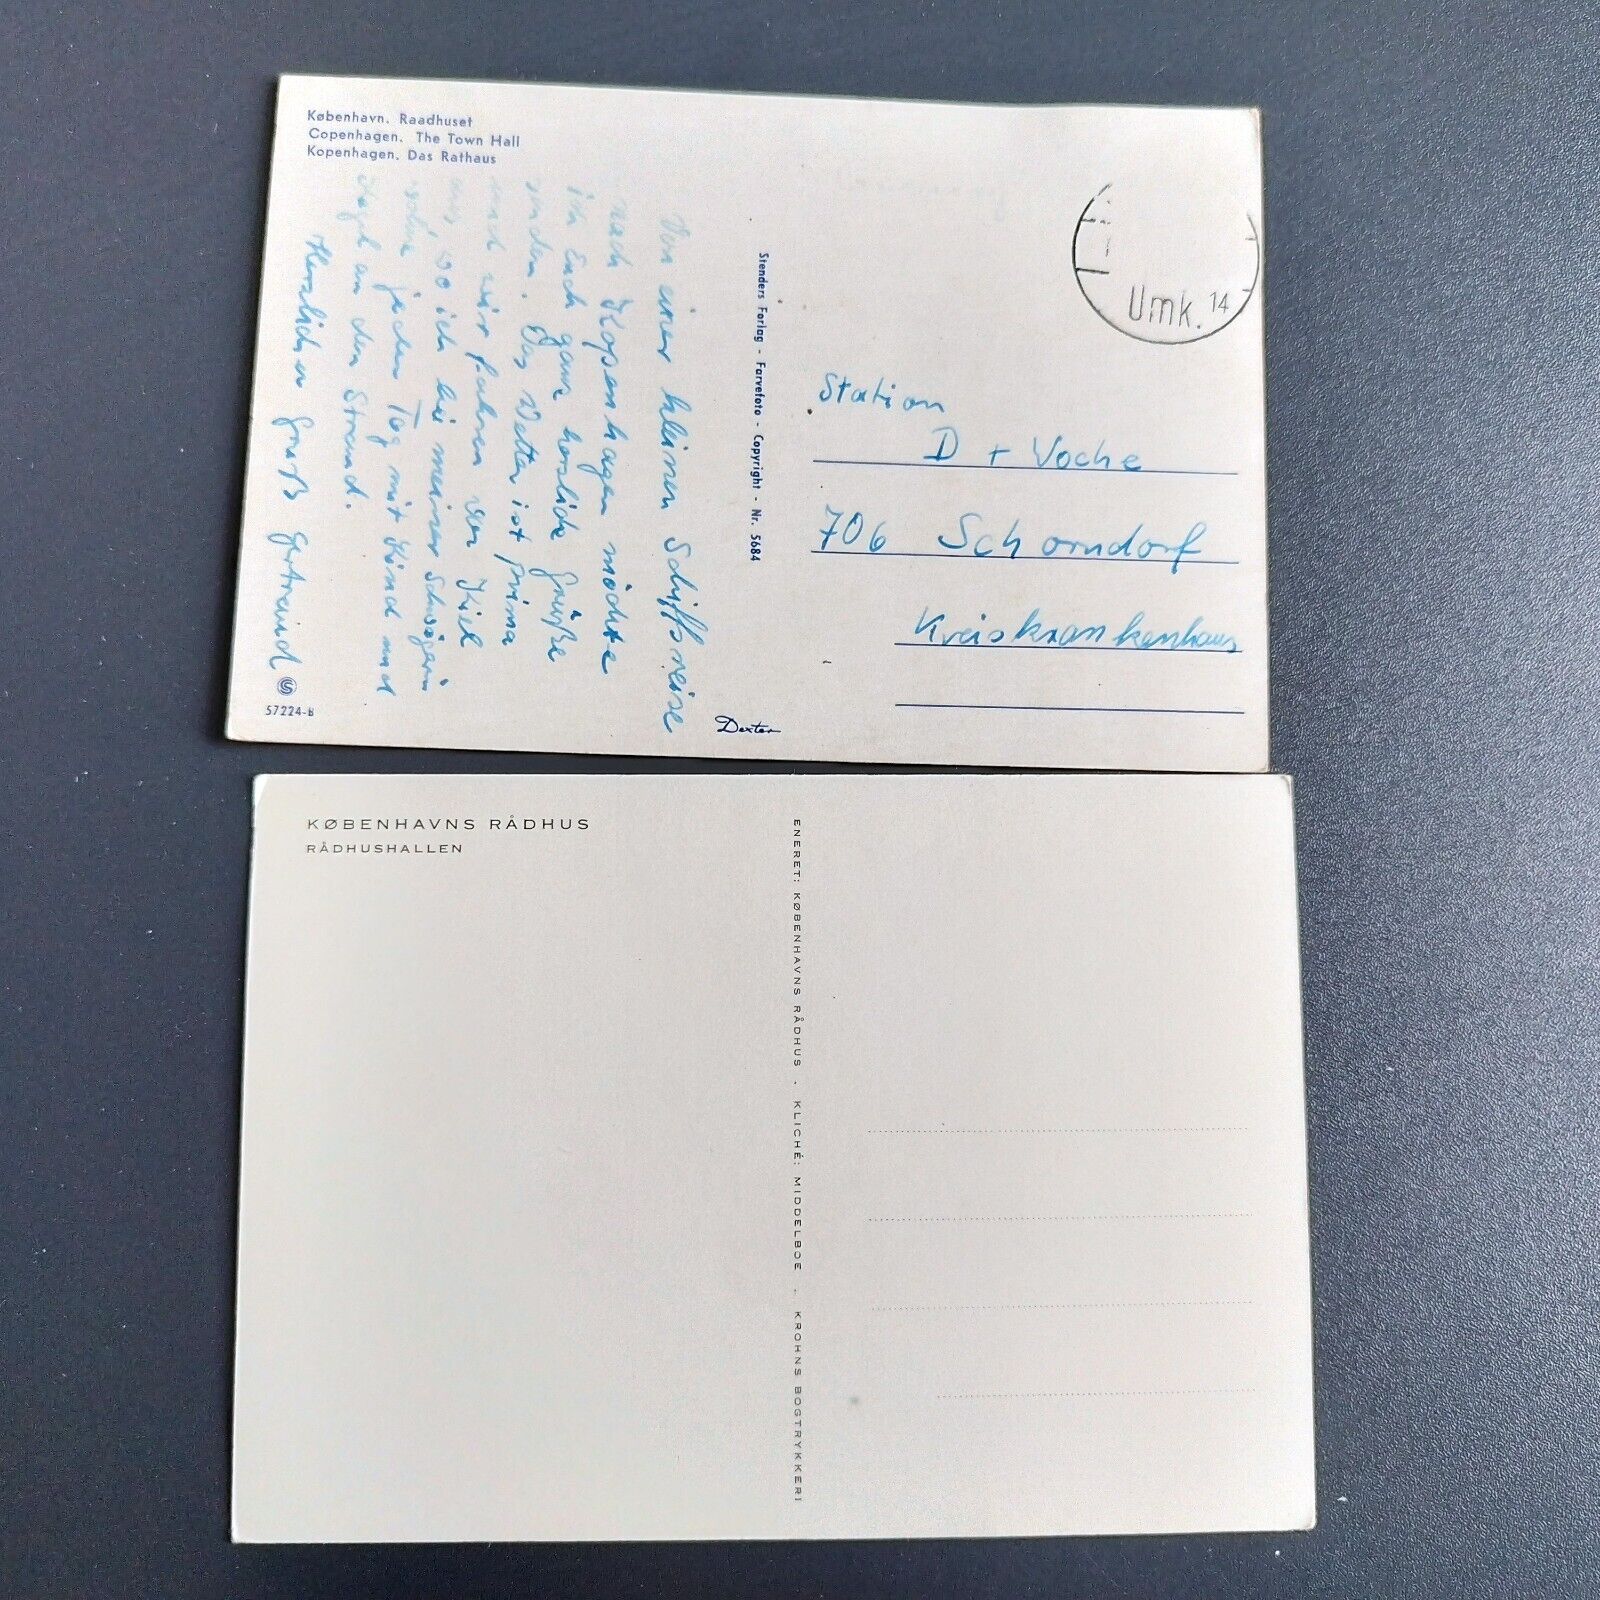 København. Raadhuset
Copenhagen. The Town Hall
Kopenhagen. Das Rathaus
Von einer kleinen Schiffsreise
nach Kopenhagen möchte
ich Euch ganz herzliche Grüße
senden. Das Wetter ist prima
und wir fahren von Kiel
aus, wo ich bei meiner Schwägerin
wohne jeden Tag mit Kind und
Kegel an den Strand.
Herzlichen Gruß Gertraud
57224-B
Stenders Forlag - Farvefoto - Copyright - Nr. 5684
Dexter
Umk. 14
Station
D + Woche
706 Schorndorf
Kreiskrankenhaus
KØBENHAVNS RÅDHUS
RÅDHUSHALLEN
ENERET: KØBENHAVNS RÅDHUS . KLICHÉ: MIDDELBOE . KROHNS BOGTRYKKERI